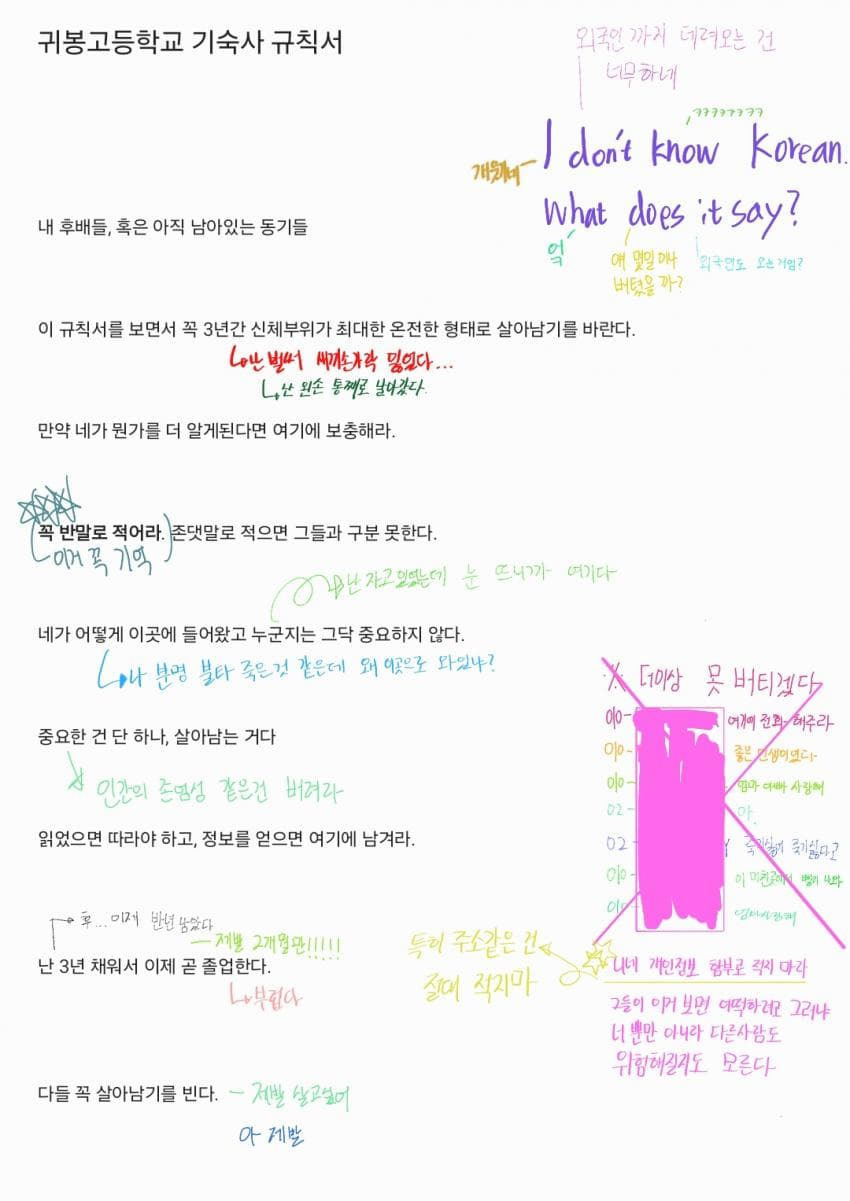 귀봉고등학교 기숙사 규칙서
외국인까지 데려오는 건
너무하네
ㅋㅋㅋㅋㅋㅋㅋㅋ
I don't know Korean.
개웃기네
What does it say?
헉
얘 몇일이나
버텼을까?
외국인도 오는거임?
내 후배들, 혹은 아직 남아있는 동기들
이 규칙서를 보면서 꼭 3년간 신체부위가 최대한 온전한 형태로 살아남기를 바란다.
난 벌써 새끼손가락 잃었다...
난 왼손 통째로 날아갔다.
만약 네가 뭔가를 더 알게된다면 여기에 보충해라.
꼭 반말로 적어라. 존댓말로 적으면 그들과 구분 못한다.
이거 꼭 기억
난 자고있었는데 눈 뜨니까 여기다
네가 어떻게 이곳에 들어왔고 누군지는 그닥 중요하지 않다.
나 분명 불타 죽은것 같은데 왜 이곳으로 와있냐?
중요한 건 단 하나, 살아남는 거다
인간의 존엄성 같은건 버려라
읽었으면 따라야 하고, 정보를 얻으면 여기에 남겨라.
※ 더이상 못 버티겠다
010-
여기에 전화 해주라
010-
좋은 인생이었다-
010-
엄마 아빠 사랑해
02-
아.
02-
죽기싫어 죽기싫다고
010-
이 미친곳에서 빨리 나와
010-
엄마 사랑해
후... 이제 반년 남았다
제발 2개월만!!!!!
난 3년 채워서 이제 곧 졸업한다.
부럽다
특히 주소같은 건
절대 적지마
니네 개인정보 함부로 적지 마라
그들이 이거 보면 어떡하려고 그러냐
너 뿐만 아니라 다른사람도
위험해질지도 모른다
다들 꼭 살아남기를 빈다.
제발 살고싶어
아 제발